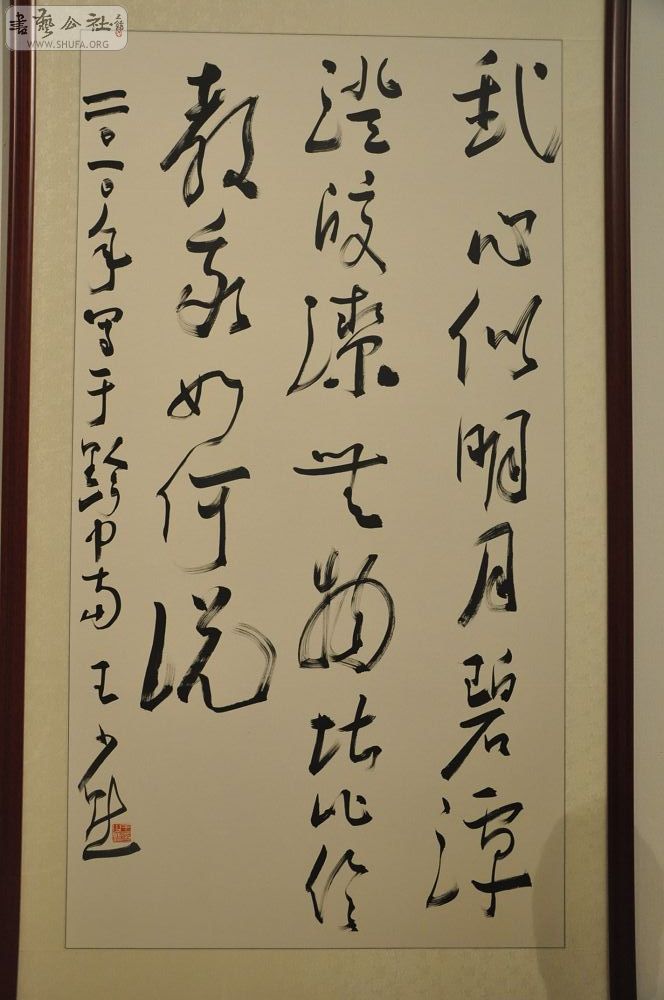 書藝公社
WWW.SHUFA.ORG
我心似明月碧潭
澄皎潔無物堪比倫
教我如何說
二〇一〇年写于黔中南 王少